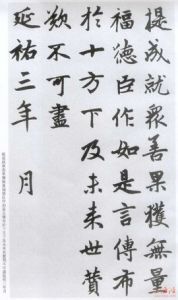 提成就衆善果獲無量
福德臣作如是言傳布
於十方下及未来世賛
歎不可盡
延祐三年 月